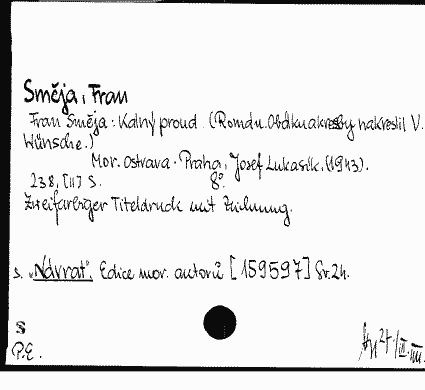 Směja, Fran
Fran Směja: Kalný proud. (Román. Obálku a kresby nakreslil V.
Wünsche.)
Mor. Ostrava - Praha, Josef Lukasík. (1943).
238, [II] S. 8°.
Zweifarbiger Titeldruck mit Zeichnung.
s. "Návrat". Edice mor. autorů [159597] Sv. 24.
S
P.E.